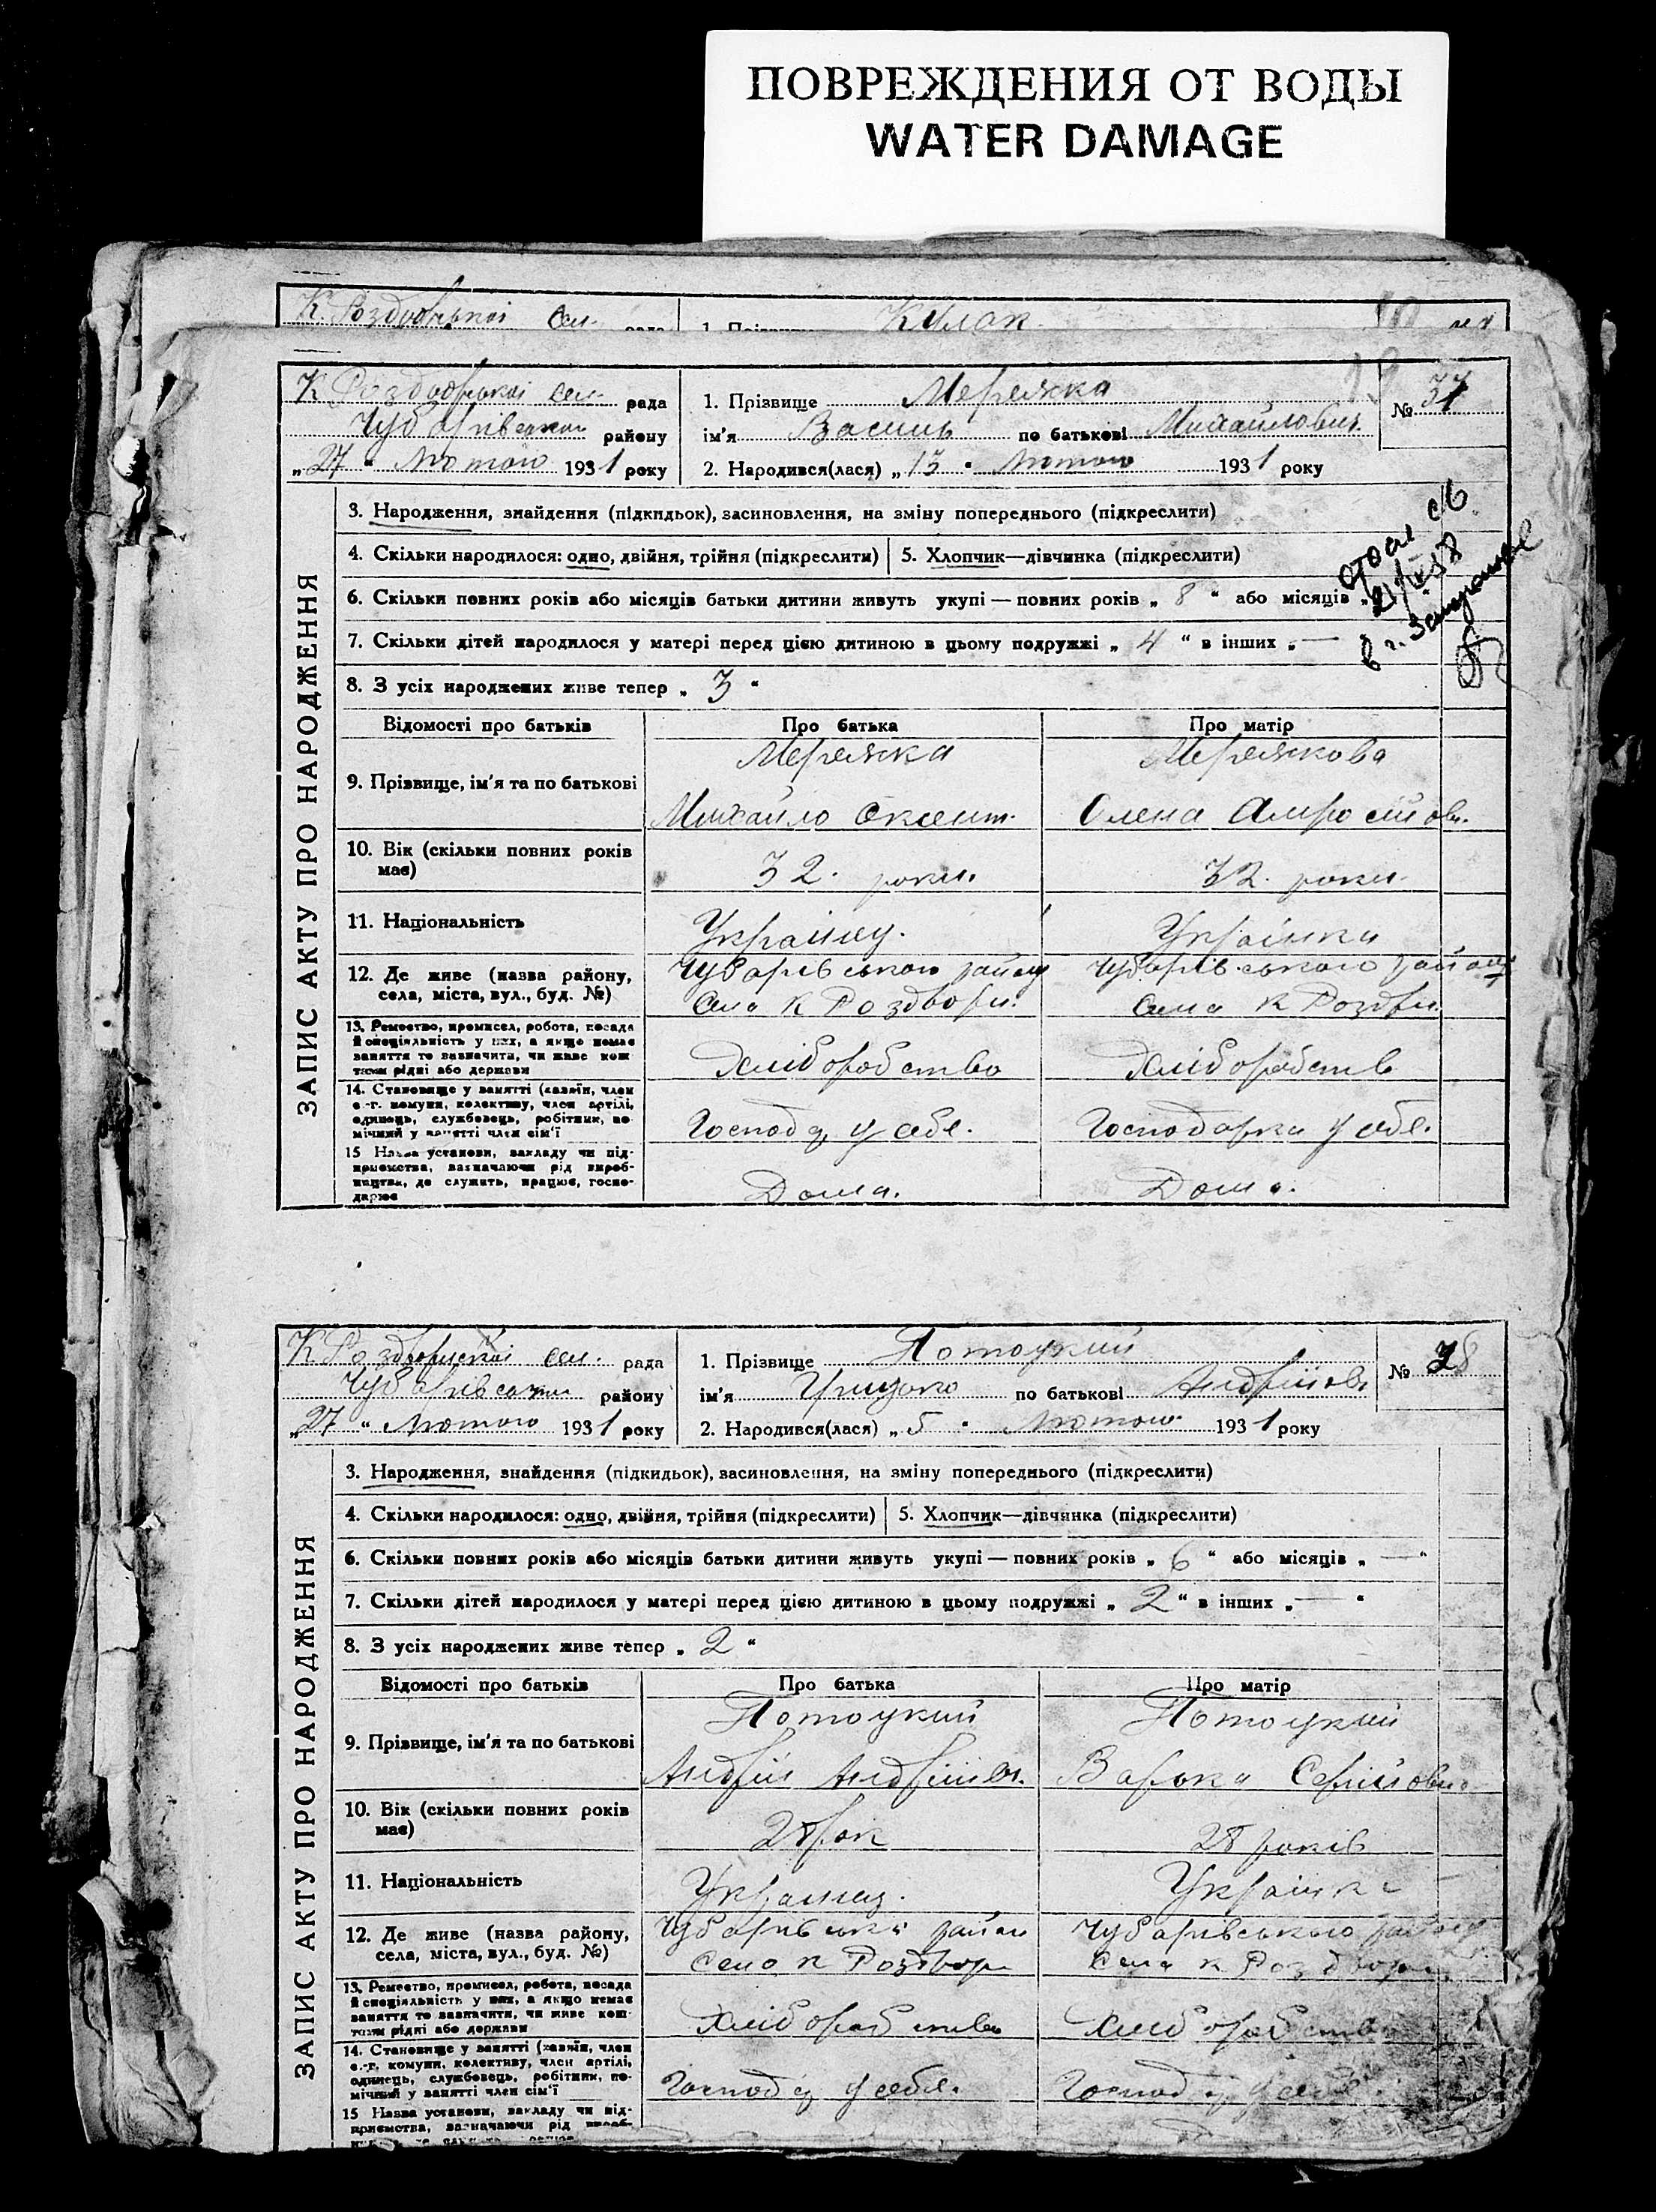 ПОВРЕЖДЕНИЯ ОТ ВОДЫ
WATER DAMAGE
К. Роздорської Сел. рада 1. Прізвище Кулак
К Роздорської сел. рада
Чубарівськ району
„27“ Лютого 1931 року
1. Прізвище Мережка
ім'я Василь по батькові Михайлович
2. Народився(лася) „13“ Лютого 1931 року
№ 37
ЗАПИС АКТУ ПРО НАРОДЖЕННЯ
3. Народження, знайдення (підкидьок), засиновлення, на зміну попереднього (підкреслити)
4. Скільки народилося: одно, двійня, трійня (підкреслити) 5. Хлопчик—дівчинка (підкреслити)
6. Скільки повних років або місяців батьки дитини живуть укупі — повних років „ 8 “ або місяців „
7. Скільки дітей народилося у матері перед цією дитиною в цьому подружжі „ 4 “ в інших „ —
8. З усіх народжених живе тепер „ 3 “
Відомості про батьків Про батька Про матір
9. Прізвище, ім'я та по батькові
Мережка
Михайло Оксент.
Мережкова
Олена Амросійовн.
10. Вік (скільки повних років має)
32. роки.
32. роки.
11. Національність
Українец.
Українка
12. Де живе (назва району,
села, міста, вул., буд. №)
Чубарівського району
Села К Роздори.
Чубарівського району
Села К Роздри.
13. Ремество, промисел, робота, посада
й спеціяльність у них, а якщо немає
заняття то визначити, чи живе кош-
том рідні або держави
Хліборобство
Хліборобств
14. Становище у занятті (хазяїн, член
с.-г. комуни, колективу, член артілі,
одинець, службовець, робітник, по-
мічний у занятті член сім'ї
Господ у себе.
Господарка у себе.
15 Назва установи, закладу чи під-
приємства, вазначаючи рід вироб-
ництва, де служить, працює, госпо-
дарює
Дома.
Дома.
К Роздорської сел. рада
Чубарівськ району
„27“ Лютого 1931 року
1. Прізвище Потоцкий
ім'я Грицько по батькові Андрійов
2. Народився(лася) „5“ Лютого 1931 року
№ 38
ЗАПИС АКТУ ПРО НАРОДЖЕННЯ
3. Народження, знайдення (підкидьок), засиновлення, на зміну попереднього (підкреслити)
4. Скільки народилося: одно, двійня, трійня (підкреслити) 5. Хлопчик—дівчинка (підкреслити)
6. Скільки повних років або місяців батьки дитини живуть укупі — повних років „ 6 “ або місяців „ — “
7. Скільки дітей народилося у матері перед цією дитиною в цьому подружжі „ 2 “ в інших „ — “
8. З усіх народжених живе тепер „ 2 “
Відомості про батьків Про батька Про матір
9. Прізвище, ім'я та по батькові
Потоцкий
Андрій Андрійов.
Потоцкий
Варька Сергійовна
10. Вік (скільки повних років має)
28 рок
28 років
11. Національність
Українец.
Українка
12. Де живе (назва району,
села, міста, вул., буд. №)
Чубарівськи район
Село К Роздори
Чубарівського району
Села К Роздори
13. Ремество, промисел, робота, посада
й спеціяльність у них, а якщо немає
заняття то зазначити, чи живе кош-
том рідні або держави
Хліборобство
Хліборобство
14. Становище у занятті (хазяїн, член
с.-г. комуни, колективу, член артілі,
одинець, службовець, робітник, по-
мічний у занятті член сім'ї
Господ у себе.
Господ у себе
15 Назва установи, закладу чи під-
приємства, вазначаючи рід вироб-